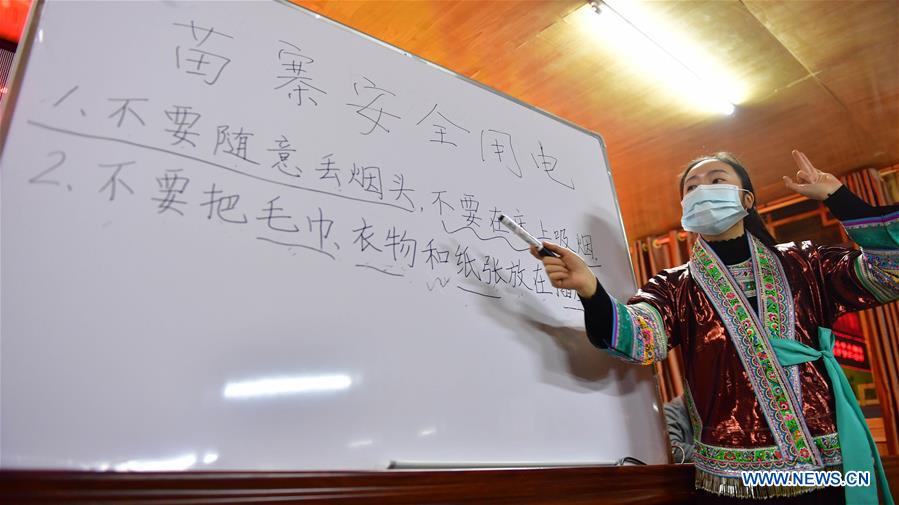 苗寨安全用电
1、不要随意丢烟头,不要在床上吸烟.
2、不要把毛巾、衣物和纸张放在
WWW.NEWS.CN